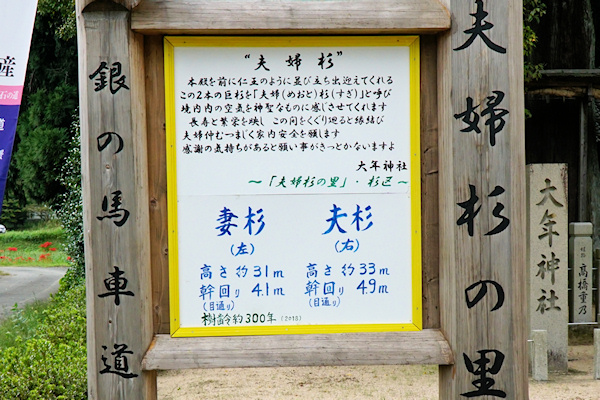 銀の馬車道
"夫婦杉"
本殿を前に仁王のように並び立ち出迎えてくれる
この2本の巨杉を「夫婦(めおと)杉(すぎ)」と呼び
境内の空気を神聖なものに感じさせてくれます
長寿と繁栄を映し この間をくぐり廻ると縁結び
夫婦仲むつまじく家内安全を願します
感謝の気持ちがあると願い事がきっとかないますよ
大年神社
~「夫婦杉の里」・杉区~
妻杉
(左)
高さ 約31m
幹回り 4.1m
(目通り)
夫杉
(右)
高さ 約33m
幹回り 4.9m
(目通り)
樹齢約300年 (2015)
夫婦杉の里
大年神社
高橋重乃
産
道